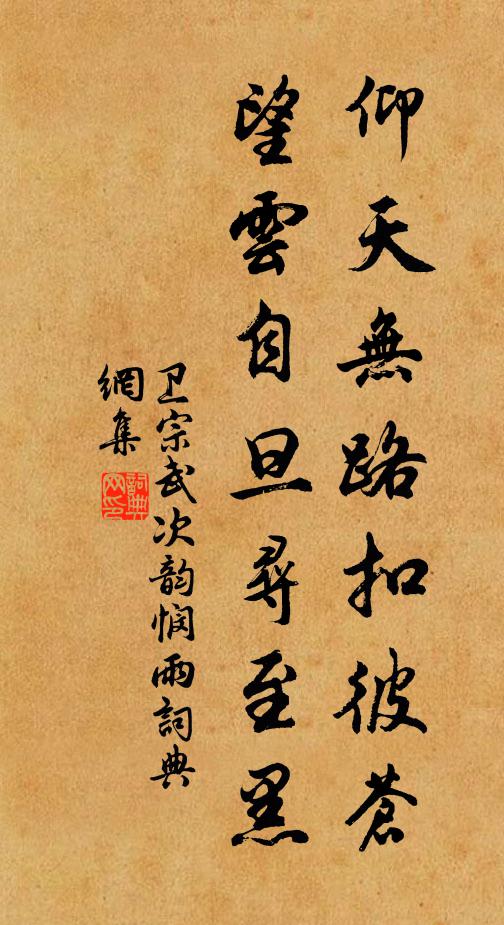 仰天無路扣彼蒼
望雲自旦尋至黑
卫宗武次韵悯雨詞典
網集
詞典网印